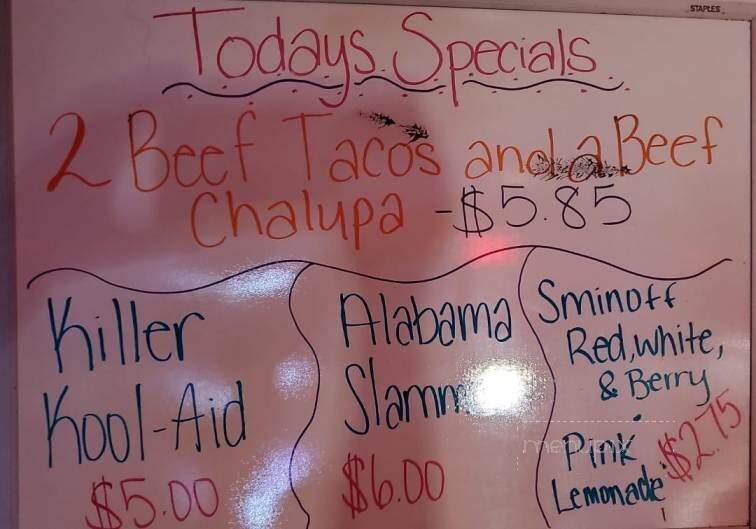 STAPLES
Todays Specials
2 Beef Tacos and a Beef
Chalupa - $5.85
Killer
Kool-Aid
$5.00
Alabama
$6.00
Sminoff
Red, white,
& Berry
Pink
Lemonade
$2.75